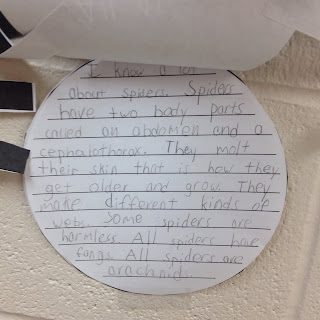 I know a lot
about spiders. Spiders
have two body parts
called an abdomen and a
cephalothorax. They molt
their skin that is how they
get older and grow. They
make different kinds of
webs. Some spiders are
harmless. All spiders have
fangs. All spiders are
arachnid.